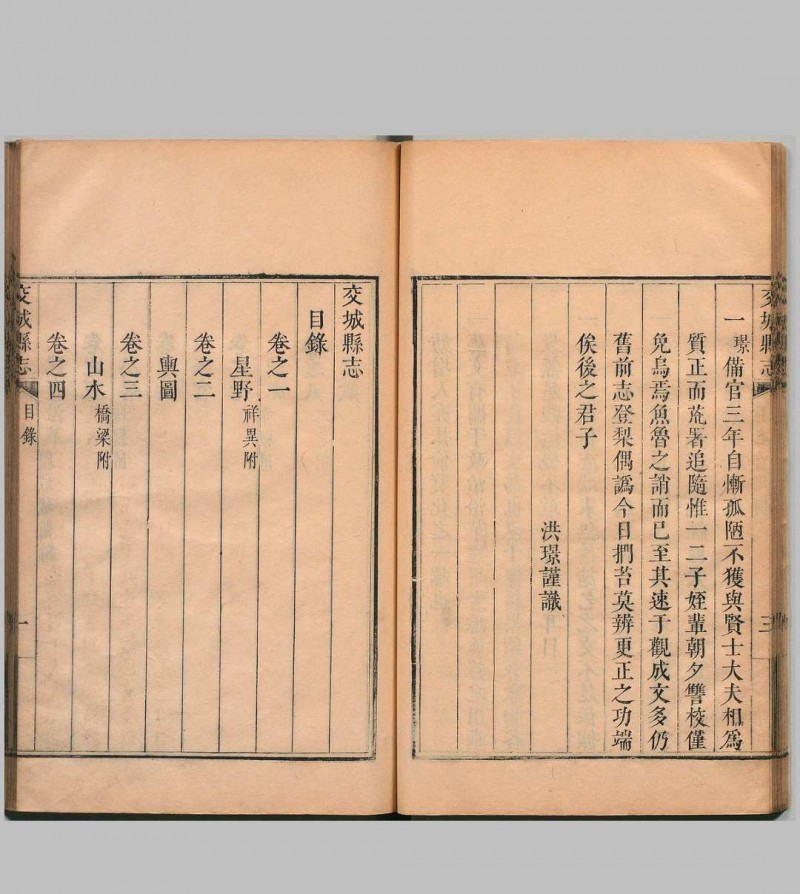 交城縣志
三
一璟備官三年自慚孤陋不獲與賢士大夫相為
質正而荒署追隨惟一二子姪輩朝夕讐校僅
免烏焉魚魯之誚而已至其速于觀成文多仍
舊前志登梨偶譌今日捫苔莫辨更正之功端
俟後之君子
洪璟謹識
交城縣志
目錄
卷之一
星野祥異附
卷之二
輿圖
卷之三
山水橋梁附
卷之四
交城縣志 目錄 一